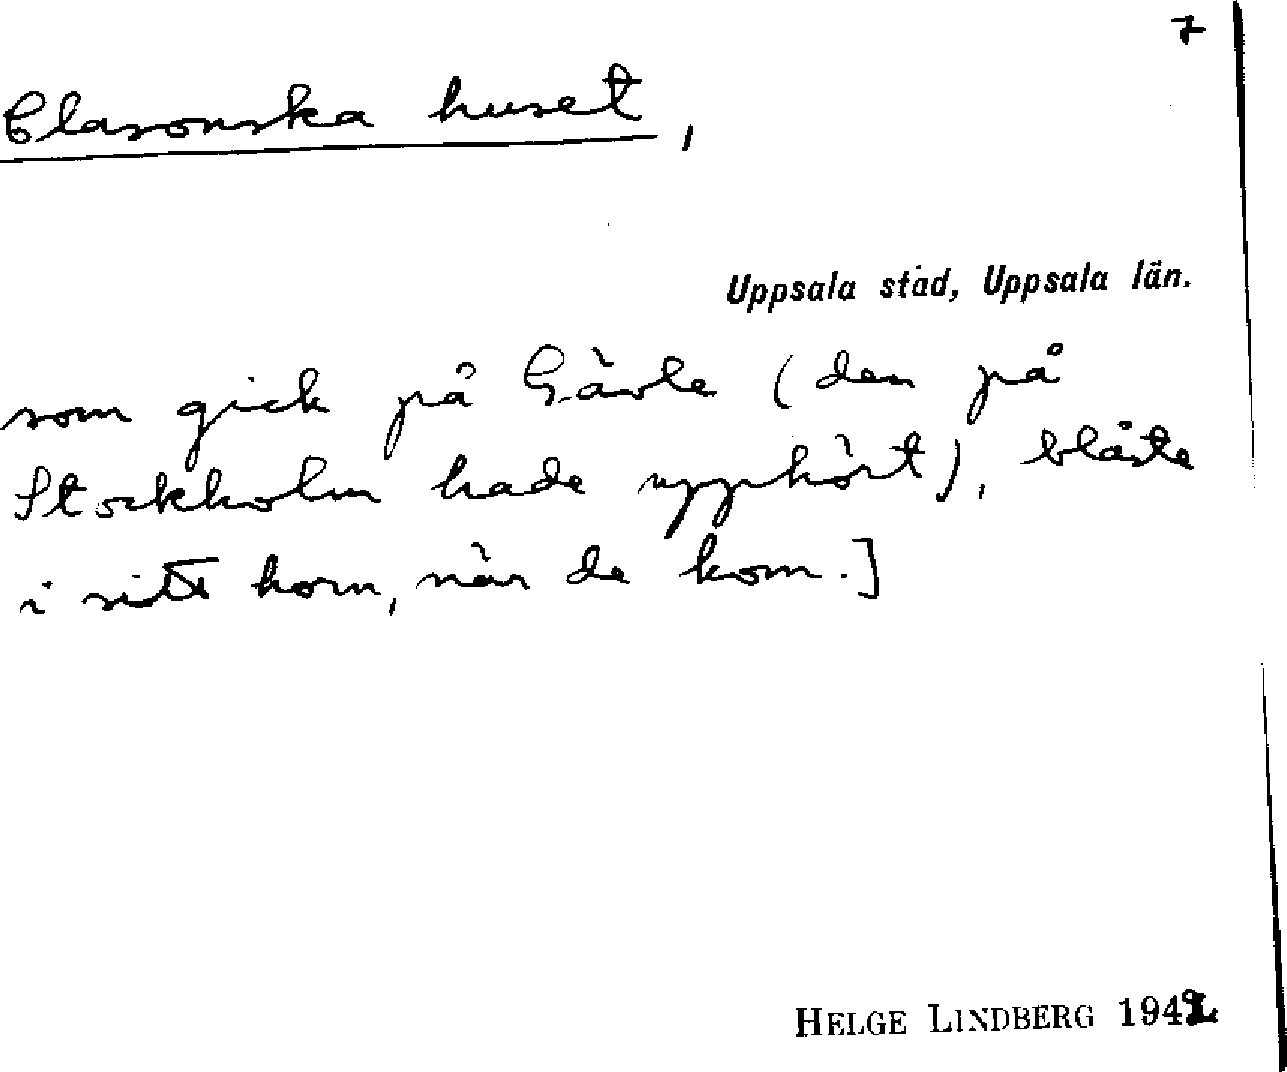 7
Clasonska huset,
Uppsala stad, Uppsala län.
som gick på Gävle (den på
Stockholm hade upphört), blåste
i sitt horn, när de kom.]
HELGE LINDBERG 1942